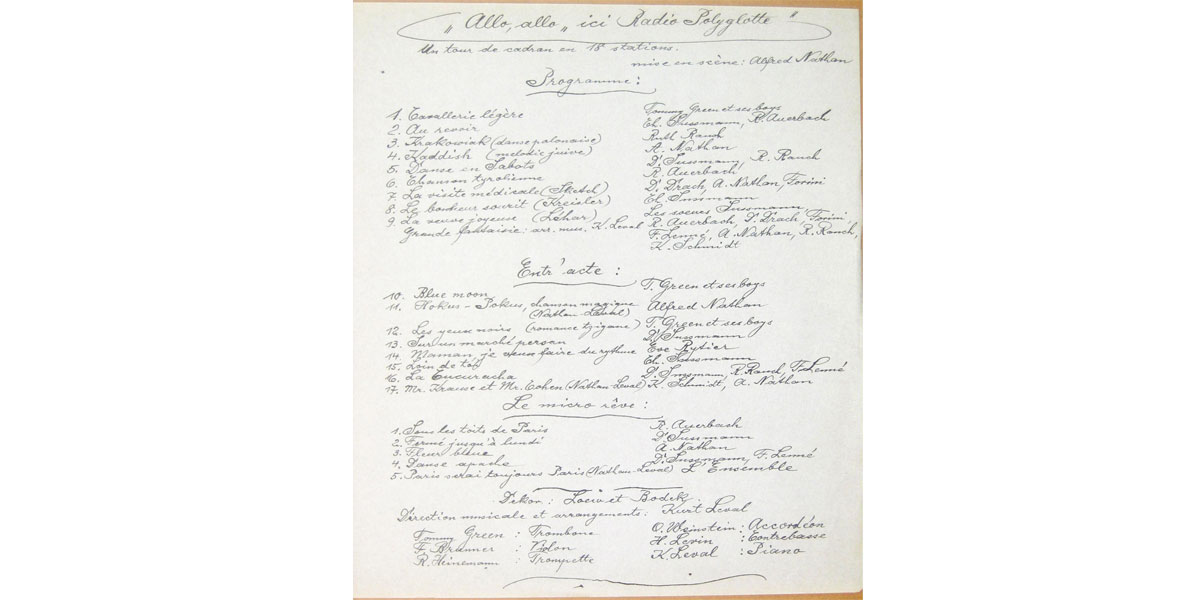 „Allo, allo„ ici Radio Polyglotte"
Un tour de cadran en 18 stations.
mise en scène: Alfred Nathan
Programme:
1. Cavallerie légère Tommy Green et ses boys
2. Au revoir Eh. Sussmann, R. Auerbach
3. Krakowiak (danse polonaise) Ruth Rauch
4. Kaddish (melodie juive) A. Nathan
5. Danse en Sabots D. Sussmann, R. Rauch
6. Chanson tyrolienne R. Auerbach
7. La visite médicale (Sketch) D. Drach, A. Nathan, Forini
8. Le bonheur sourit (Kreisler) Eh. Sussmann
9. La veuve joyeuse (Léhar) Les soeurs Sussmann,
Grande fantaisie: arr. mus. K. Leval R. Auerbach, D. Drach, Forini,
F. Lenné, A. Nathan, R. Rauch,
K. Schmidt
Entr'acte:
10. Blue moon T. Green et ses boys
11. Hokus-Pokus, chanson magique Alfred Nathan
(Nathan-Leval)
12. Les yeux noirs (romance tzigane) T. Green et ses boys
13. Sur un marché persan D. Sussmann
14. Maman, je veux faire du rythme Eve Rytier
15. Loin de toi Eh. Sussmann
16. La Cucuracha D. Sussmann, R. Rauch, F. Lenné
17. Mr. Krause et Mr. Cohen (Nathan-Leval) K. Schmidt, A. Nathan
Le micro rêve:
1. Sous les toits de Paris R. Auerbach
2. Fermé jusqu'à lundi D. Sussmann
3. Fleur bleue A. Nathan
4. Danse apache D. Sussmann, F. Lenné
5. Paris serai toujours Paris (Nathan-Leval) L'Ensemble
Dekor: Loew et Bodek.
Direction musicale et arrangements: Kurt Leval
Tommy Green : Trombone O. Weinstein : Accordéon
F. Brunner : Violon H. Levin : Contrebasse
R. Heinemann : Trompette K. Leval : Piano